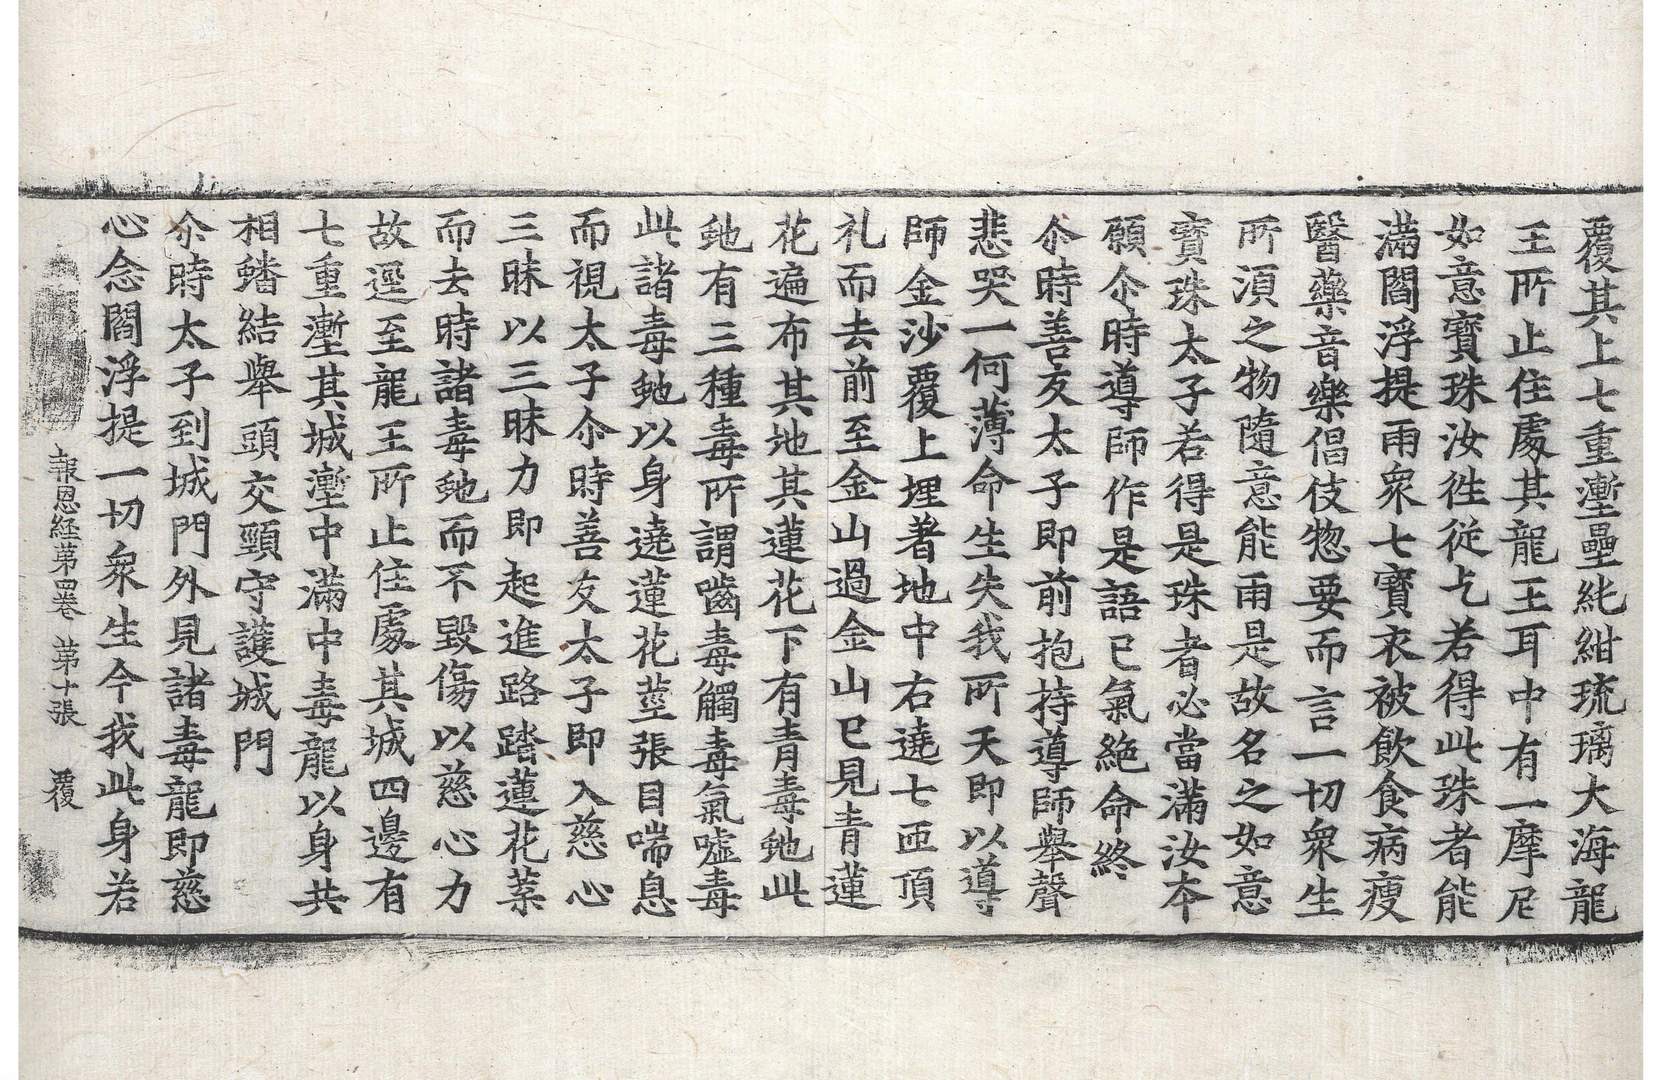 覆其上七重壍壘紕紺琉璃大海龍
王所止住處其龍王耳中有一摩尼
如意寶珠汝徃従乞若得此珠者能
滿閻浮提雨衆七寶衣被飲食病瘦
醫藥音樂倡伎惣要而言一切衆生
所湏之物隨意能雨是故名之如意
寶珠太子若得是珠者必當滿汝本
願尒時導師作是語已氣絶命終
尒時善友太子即前抱持導師舉聲
悲哭一何薄命生失我所天即以導
師金沙覆上埋著地中右遶七匝頂
礼而去前至金山過金山已見青蓮
花遍布其地其蓮花下有青毒虵此
虵有三種毒所謂齒毒觸毒氣噓毒
此諸毒虵以身遶蓮花莖張目喘息
而視太子尒時善友太子即入慈心
三昧以三昧力即起進路踏蓮花葉
而去時諸毒虵而不毀傷以慈心力
故逕至龍王所止住處其城四邊有
七重壍其城壍中滿中毒龍以身共
相蟠結舉頭交頸守護城門
尒時太子到城門外見諸毒龍即慈
心念閻浮提一切衆生今我此身若
報恩経苐四卷 苐十張 覆